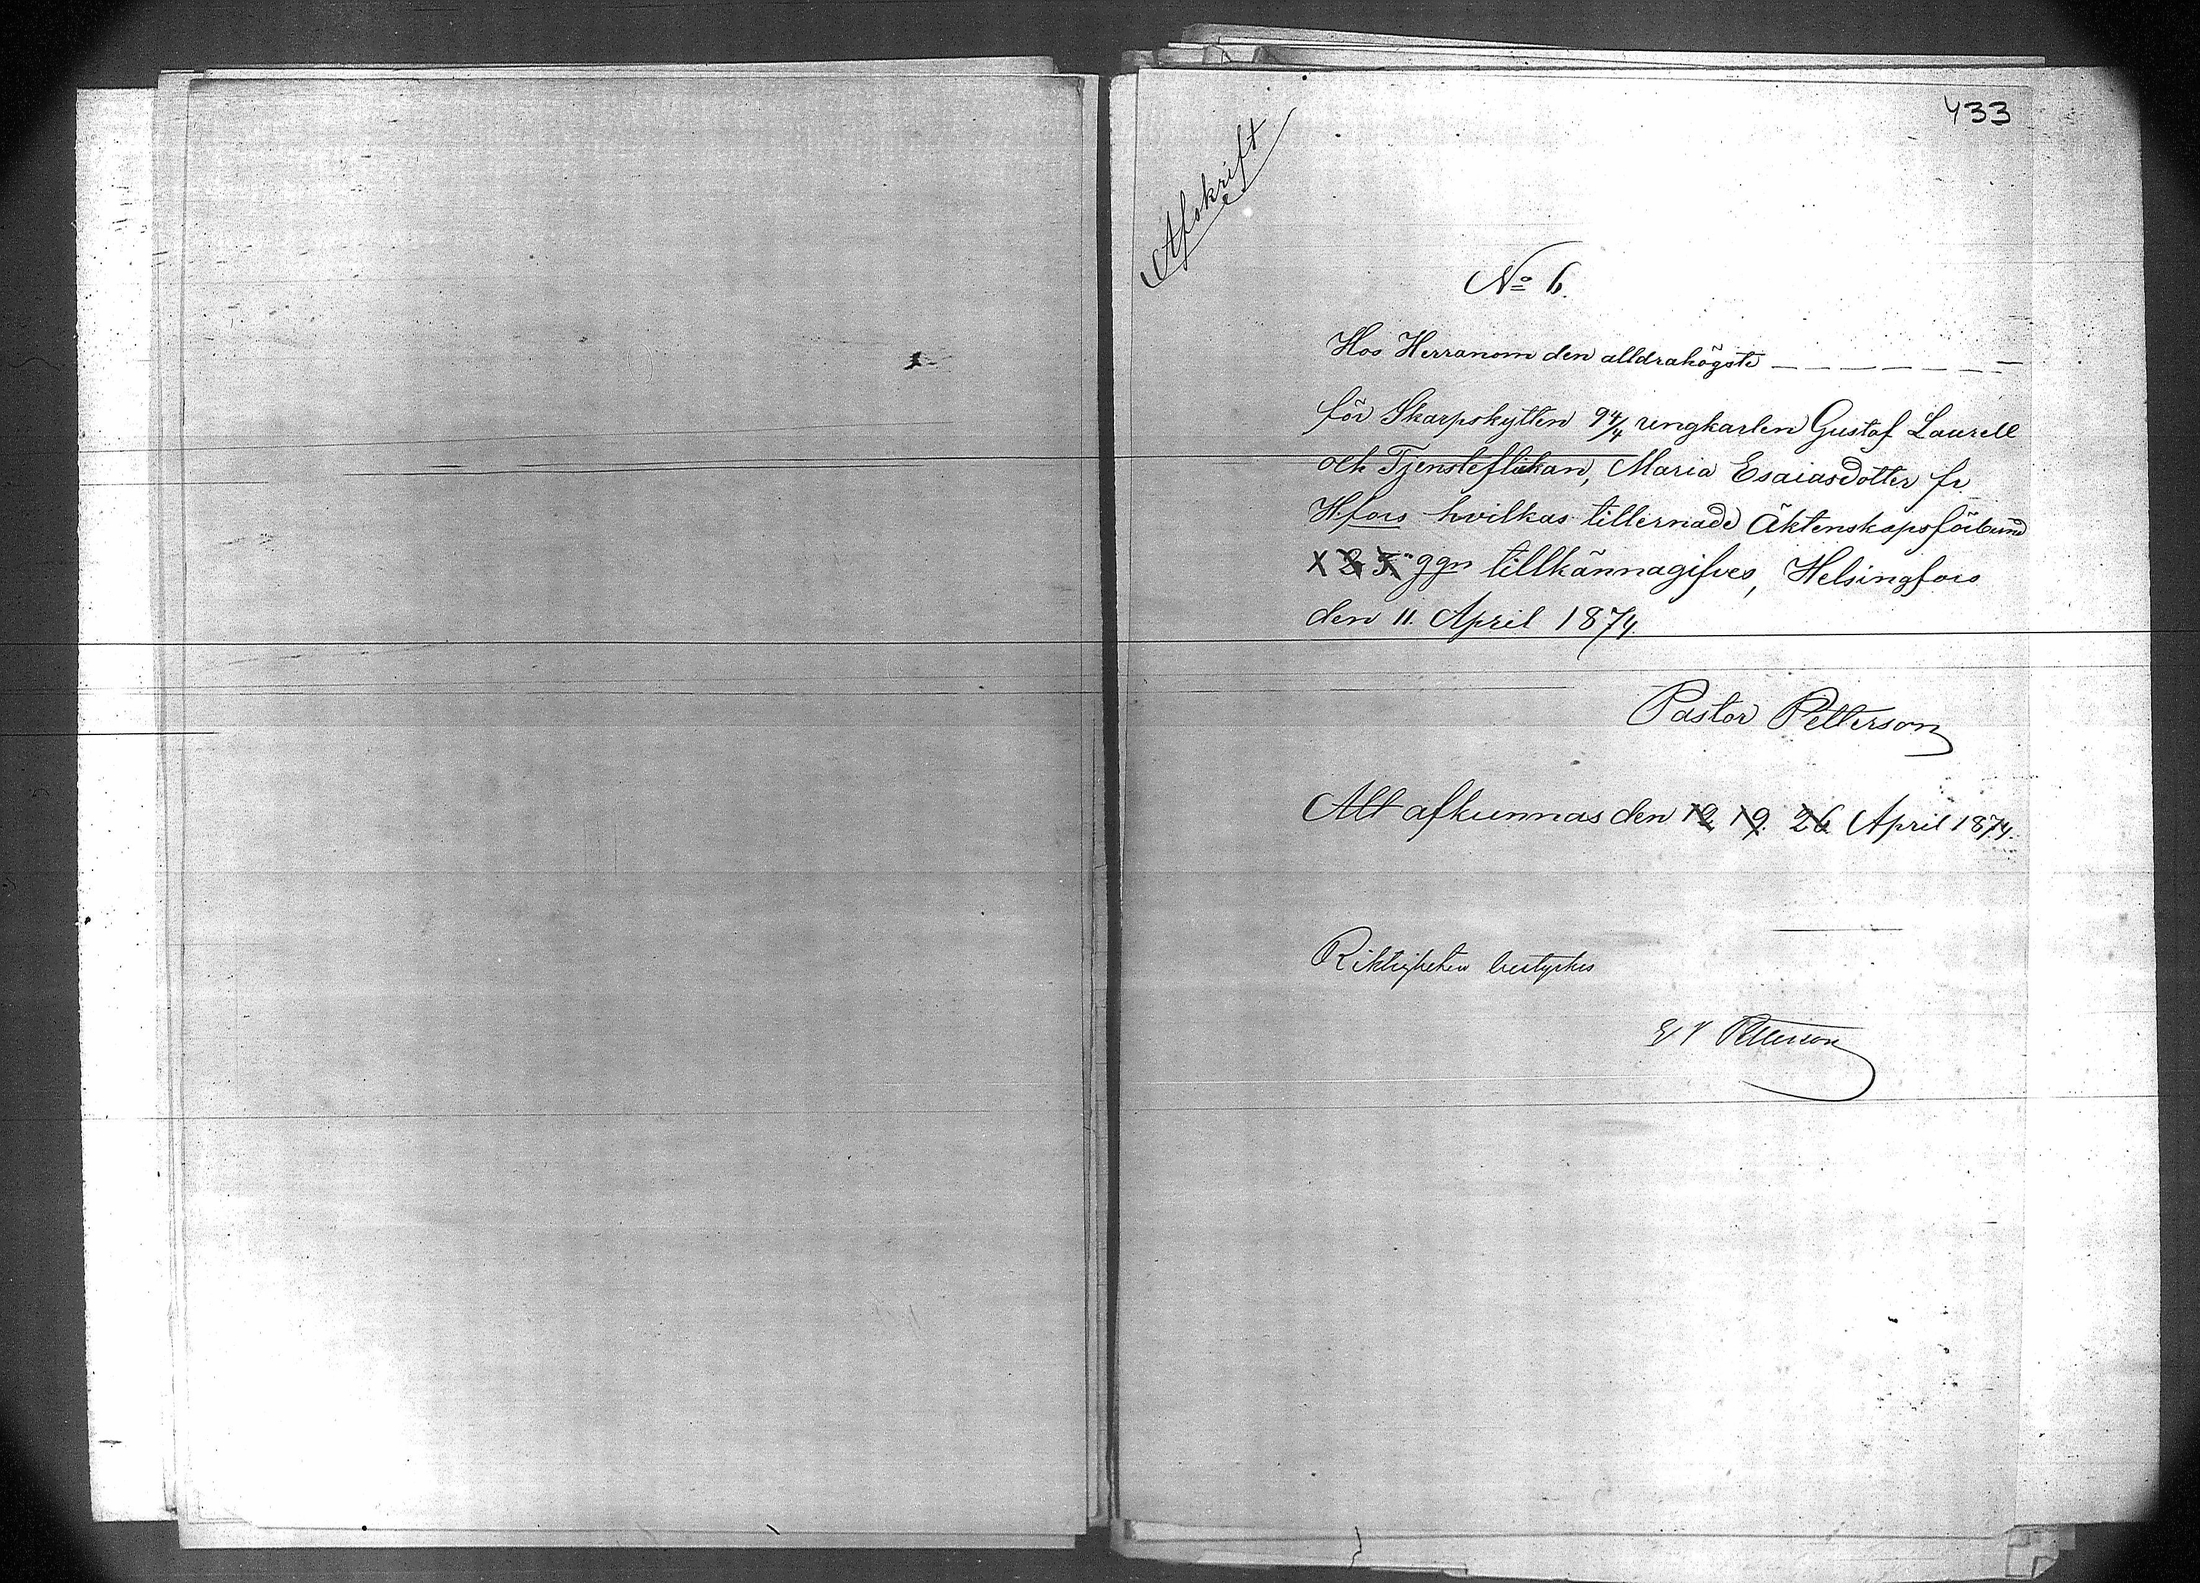 433
Afskrift
No 6.
Hos Herranom den alldrahögste
för Skarpskytten 94/4 ungkarlen Gustaf Laurell
och Tjensteflikan, Maria Esaiasdotter fr
H.fors hvilkas tillernade Äktenskapsförbund
ggn tillkännagifves, Helsingfors
den 11. April 1874.
Pastor Petterson
Att afkunnas den 12 19. 26 April 1874.
Riktigheten bestyrkes
Petterson